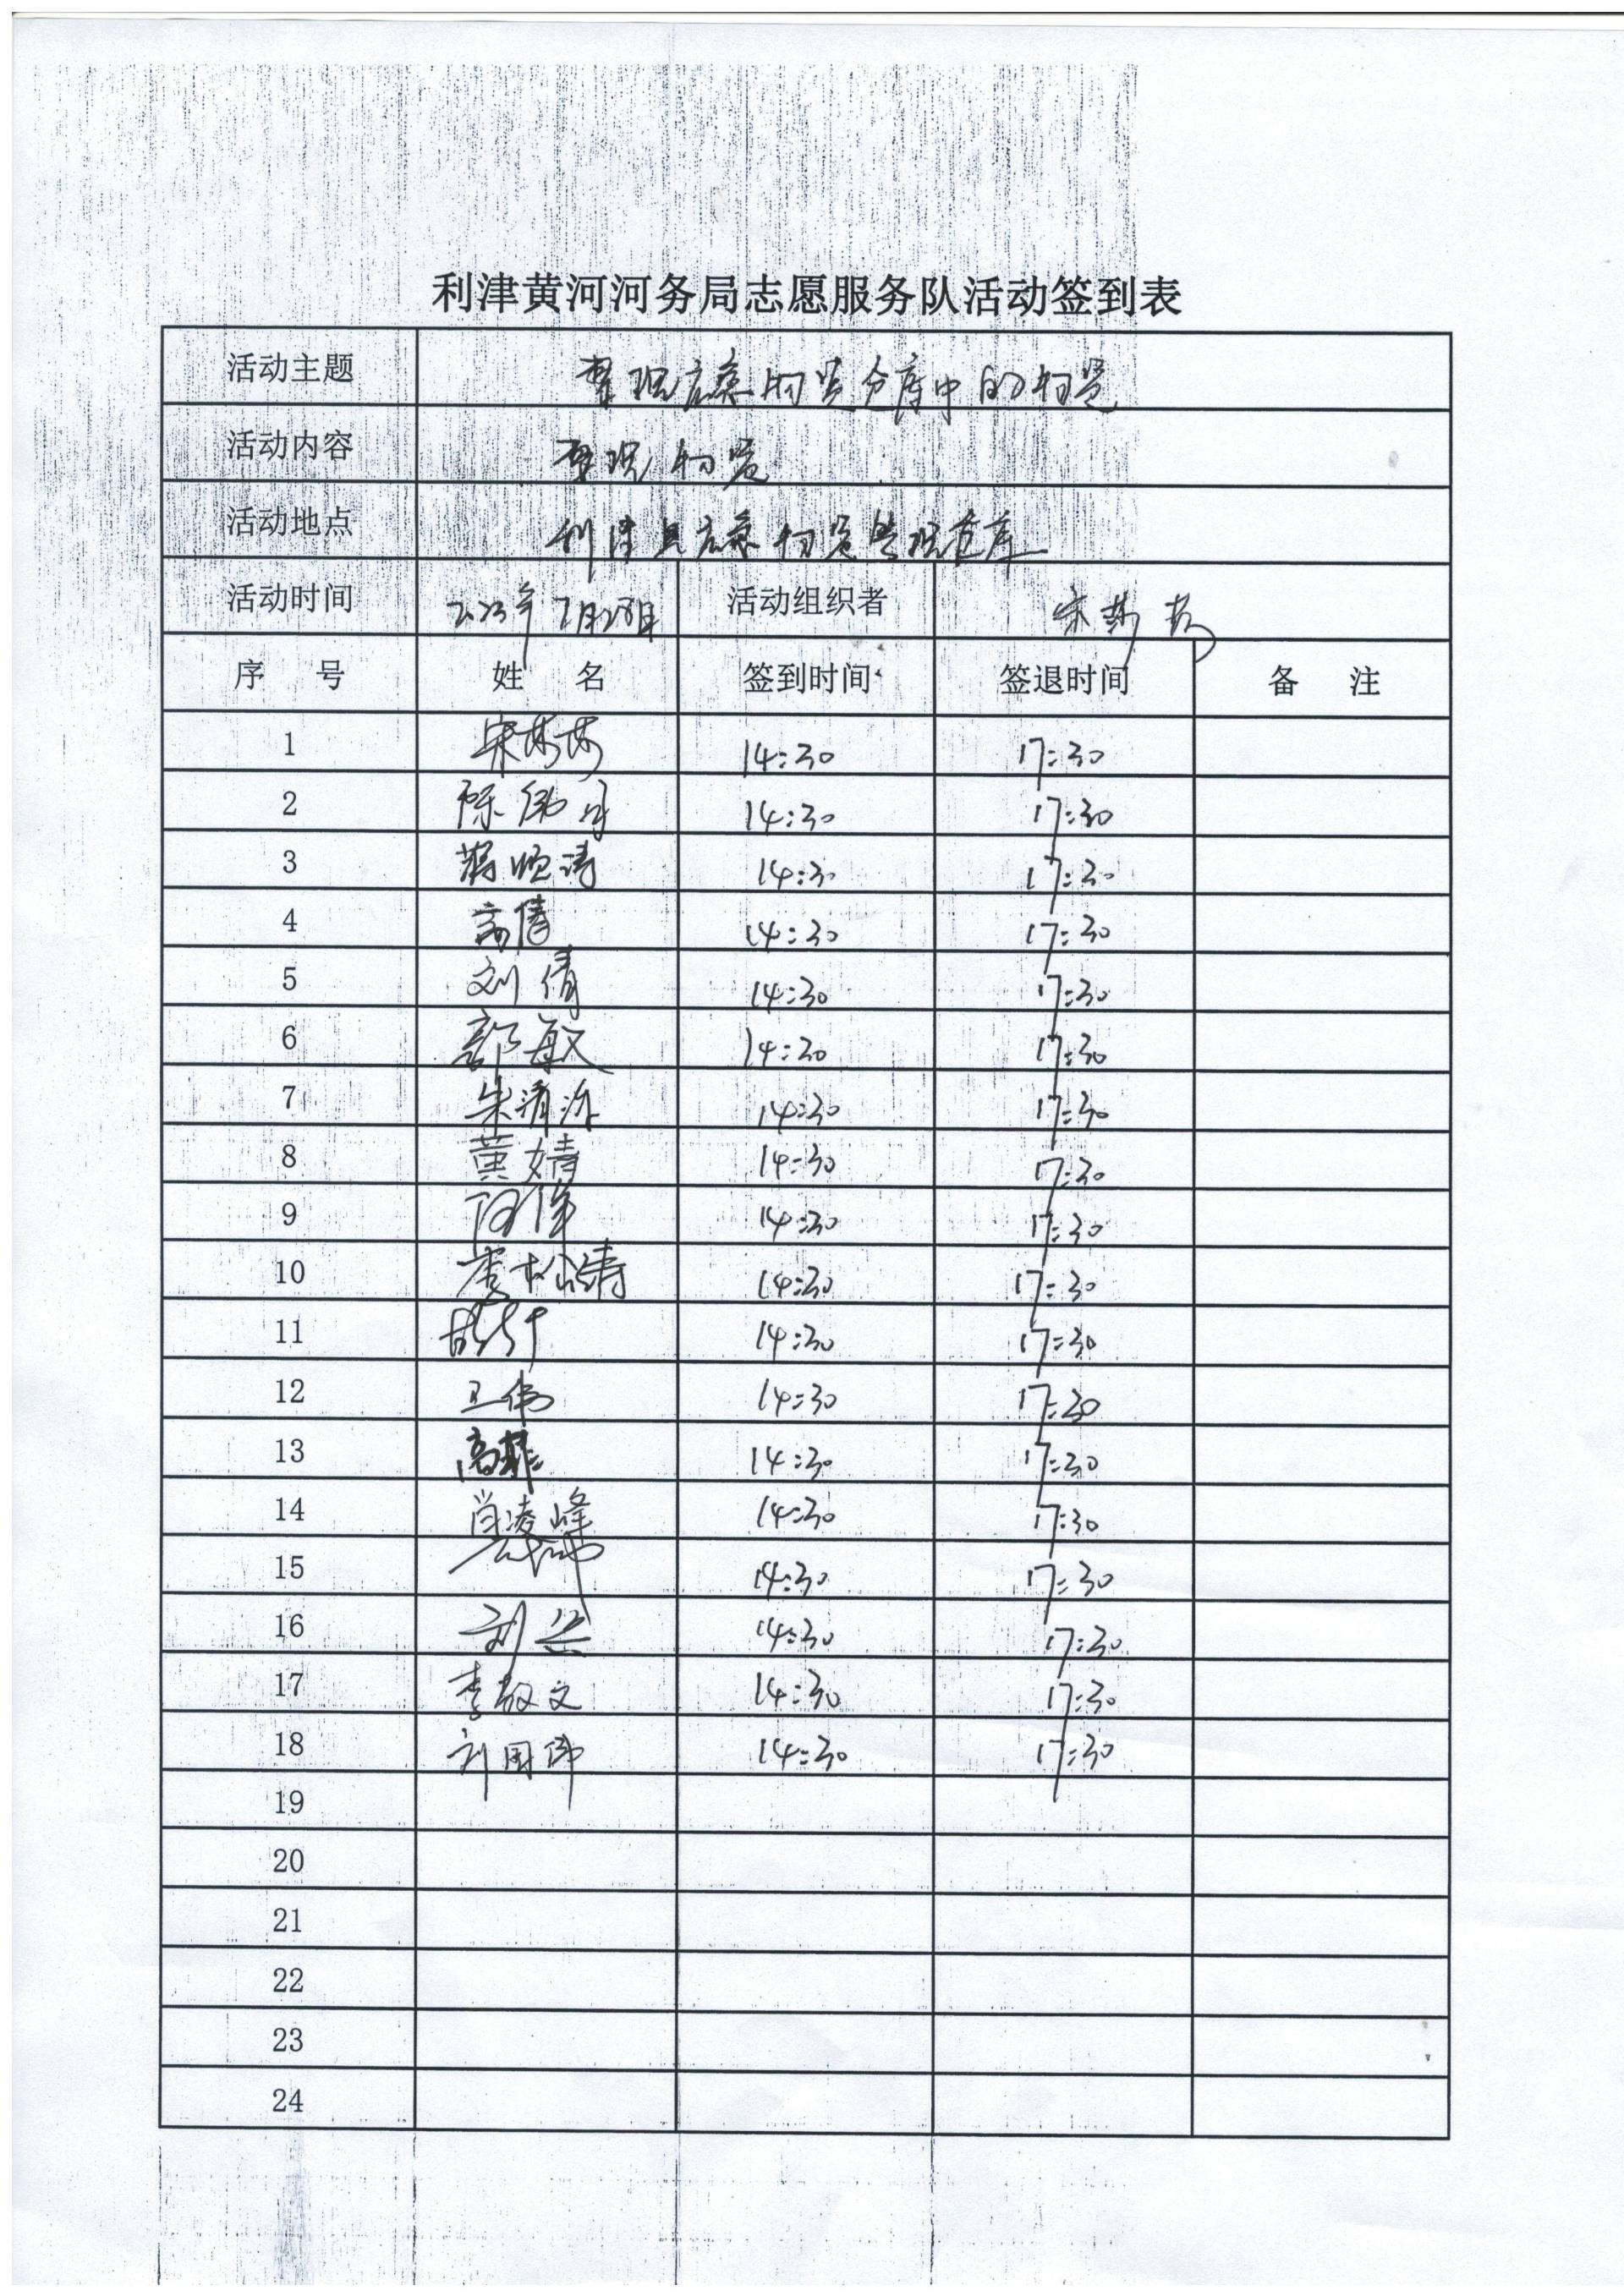 利津黄河河务局志愿服务队活动签到表
活动主题 整理应急物资仓库中的物资
活动内容 整理物资
活动地点 利津县应急物资管理仓库
活动时间 2023年7月28日 活动组织者 宋莎莎
序 号 姓 名 签到时间 签退时间 备 注
1 宋莎莎 14:30 17:30
2 陈 14:30 17:30
3 14:30 17:30
4 高倩 14:30 17:30
5 刘倩 14:30 17:30
6 郭敏 14:30 17:30
7 朱清 14:30 17:30
8 黄婧 14:30 17:30
9 14:30 17:30
10 李松涛 14:30 17:30
11 14:30 17:30
12 卫伟 14:30 17:30
13 高菲 14:30 17:30
14 肖凌峰 14:30 17:30
15 14:30 17:30
16 刘 14:30 17:30
17 李敬文 14:30 17:30
18 刘国伟 14:30 17:30
19
20
21
22
23
24